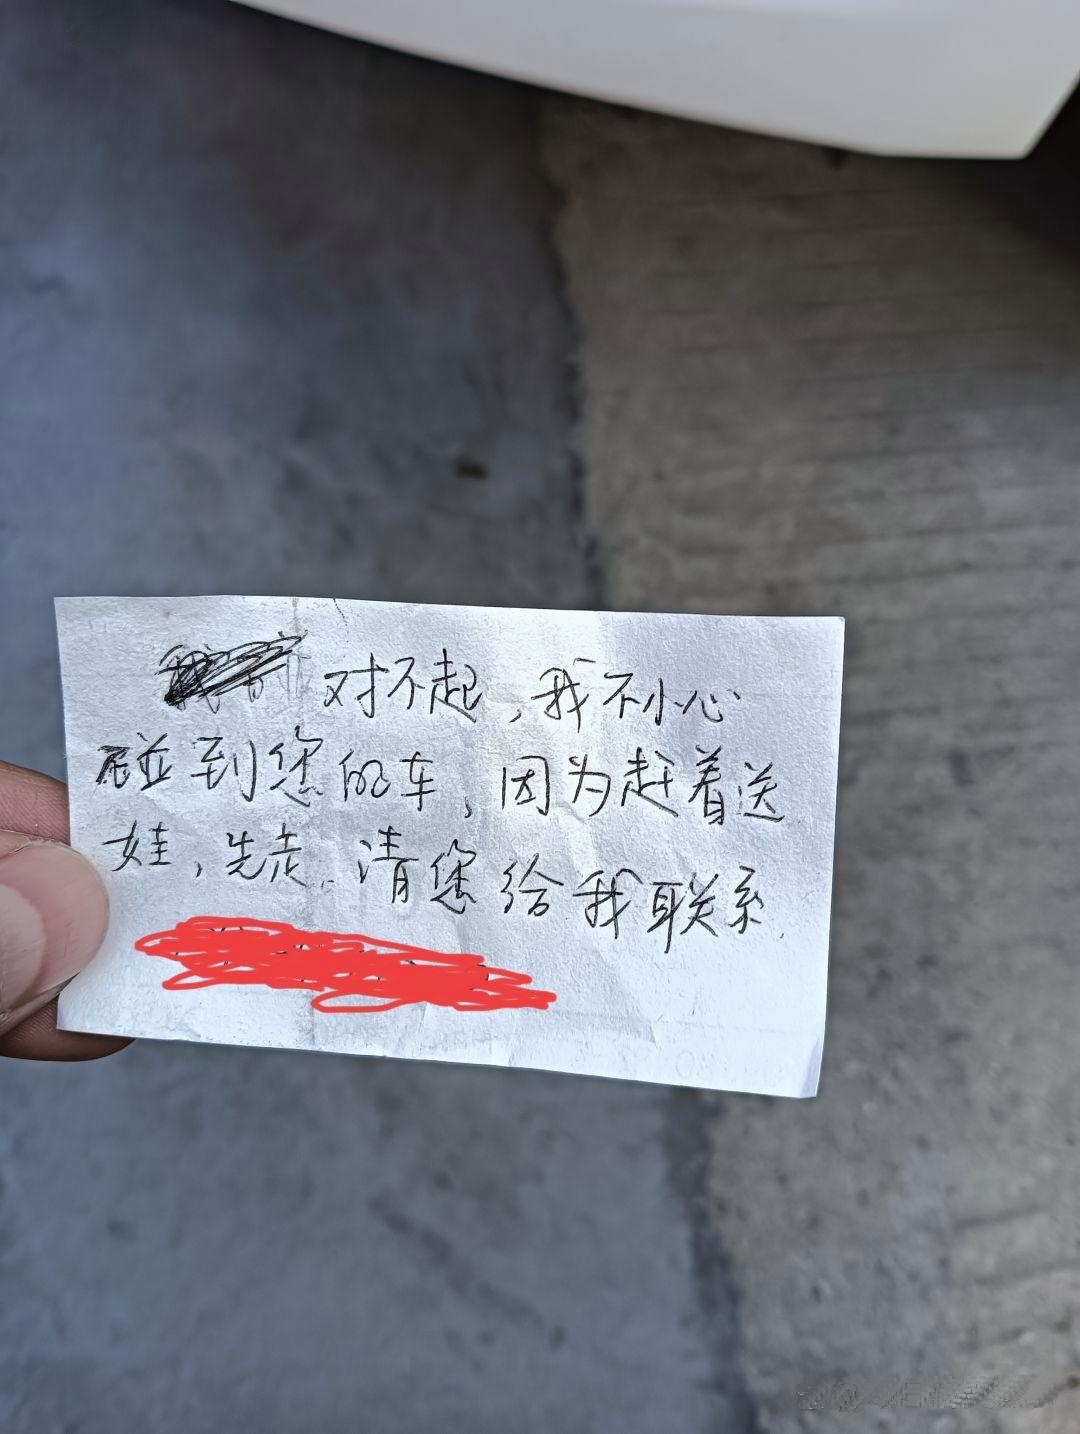 对不起，我不小心
碰到您的车，因为赶着送
娃，先走.请您给我联系.